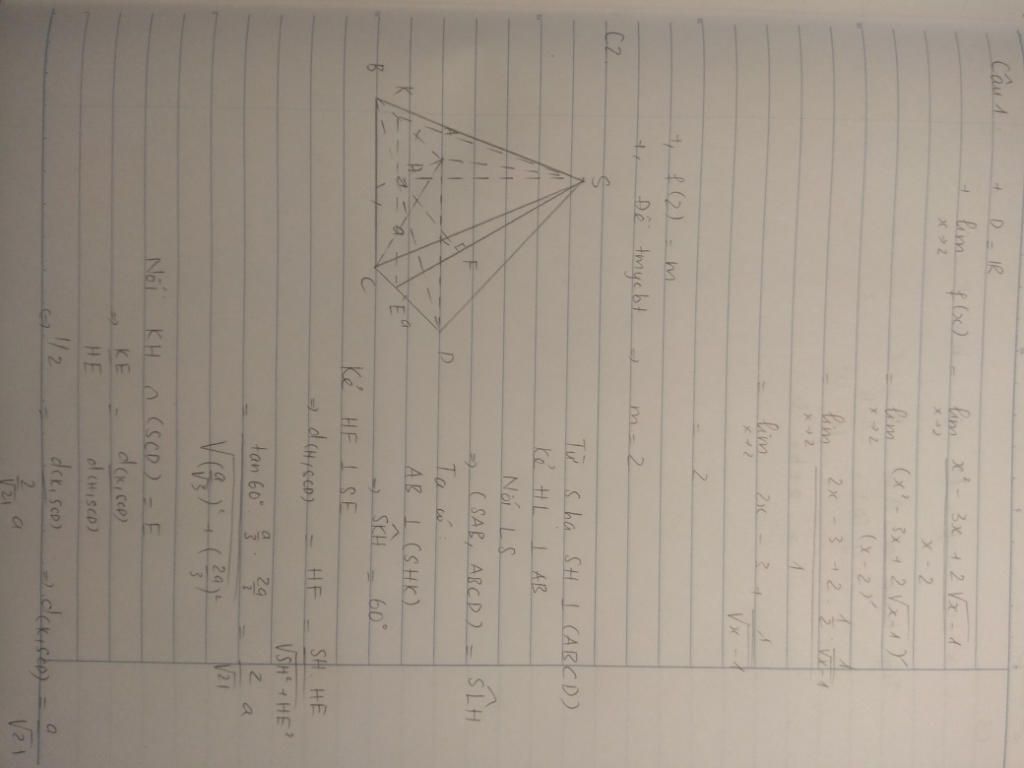 Câu 1 + D = R
+ lim x→2 f(x) = lim x→2 (x² - 3x + 2√x-1)/(x - 2)
= lim x→2 (x² - 3x + 2√x-1)'/(x - 2)'
= lim x→2 (2x - 3 + 2 · 1/2 · 1/√x-1)/1
= lim x→2 2x - 3 + 1/√x-1
= 2
+, f(2) = m
+, Để tmycbt ⇒ m = 2
C2.
S
A
K
B
H
a
F
C
E
a
D
Từ S hạ SH ⊥ (ABCD)
Kẻ HL ⊥ AB
Nối LS
⇒ (SAB, ABCD) = SLH
Ta có:
AB ⊥ (SHK)
⇒ SKH = 60°
Kẻ HF ⊥ SE
⇒ d(H,SCD) = HF = SH · HE/√SH² + HE²
= tan60° · a/3 · 2a/3 / √(a/√3)² + (2a/3)² = 2/√21 a
Nối KH ∩ (SCD) = E
⇒ KE/HE = d(K,SCD)/d(H,SCD)
⇔ 1/2 = d(K,SCD)/(2/√21 a) ⇒ d(K,SCD) = a/√21